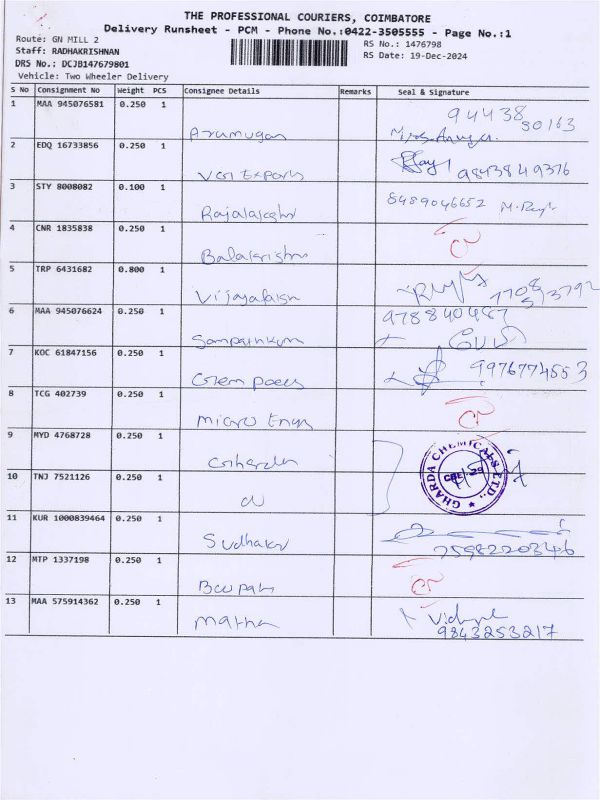 THE PROFESSIONAL COURIERS, COIMBATORE
Delivery Runsheet - PCM - Phone No.:0422-3505555 - Page No.:1
Route: GN MILL 2
Staff: RADHAKRISHNAN
DRS No.: DCJB147679801
Vehicle: Two Wheeler Delivery
RS No.: 1476798
RS Date: 19-Dec-2024
S No Consignment No Weight PCS Consignee Details Remarks Seal & Signature
1 MAA 945076581 0.250 1 Arumugam 94438 30163
2 EDQ 16733856 0.250 1 Exports 9843849376
3 STY 8008082 0.100 1 Rajalakshmi 8489046652
4 CNR 1835838 0.250 1 Balakrishn
5 TRP 6431682 0.800 1
6 MAA 945076624 0.250 1 Sampathkum 9788404
7 KOC 61847156 0.250 1 9976774553
8 TCG 402739 0.250 1 Micro Engg
9 MYD 4768728 0.250 1
GHARDA CHEMICALS LTD.,
10 TNJ 7521126 0.250 1
11 KUR 1000839464 0.250 1 Sudhakr 7598220346
12 MTP 1337198 0.250 1
13 MAA 575914362 0.250 1 Matha 9843253217